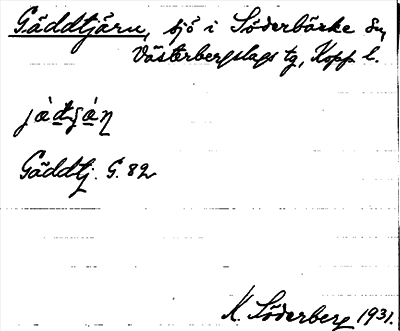 Gäddtjärn, sjö i Söderbärke sn,
Västerbergslags tg, Kopp. l.
Gäddtj. G. 82
K. Söderberg 1931.